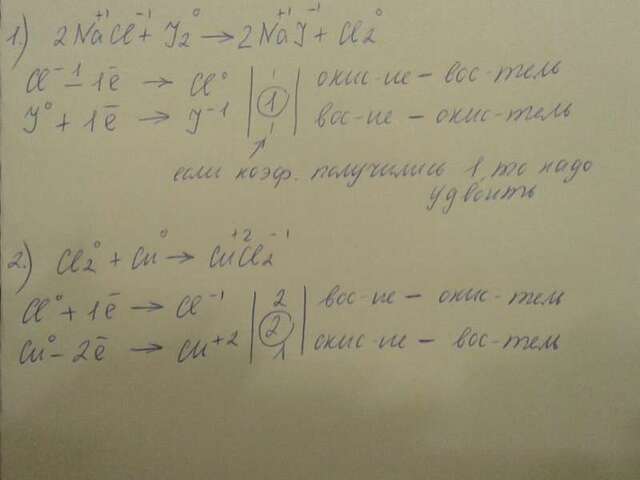 1.) 2Na⁺¹Cl⁻¹ + J₂⁰ → 2Na⁺¹J⁻¹ + Cl₂⁰
Cl⁻¹ – 1ē → Cl⁰ | 1 | окис-ие – вос-тель
J⁰ + 1ē → J⁻¹ | 1 1 | вос-ие – окис-тель
если коэф. получились 1, то надо
удвоить
2.) Cl₂⁰ + Cu⁰ → Cu⁺²Cl₂⁻¹
Cl⁰ + 1ē → Cl⁻¹ | 2 | вос-ие – окис-тель
Cu⁰ – 2ē → Cu⁺² | 2 1 | окис-ие – вос-тель